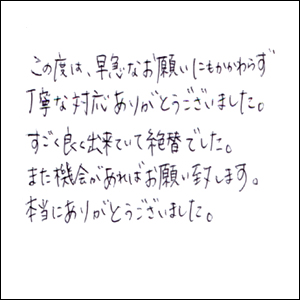 この度は、早急なお願いにもかかわらず
丁寧な対応ありがとうございました。
すごく良く出来ていて絶賛でした。
また機会があればお願い致します。
本当にありがとうございました。